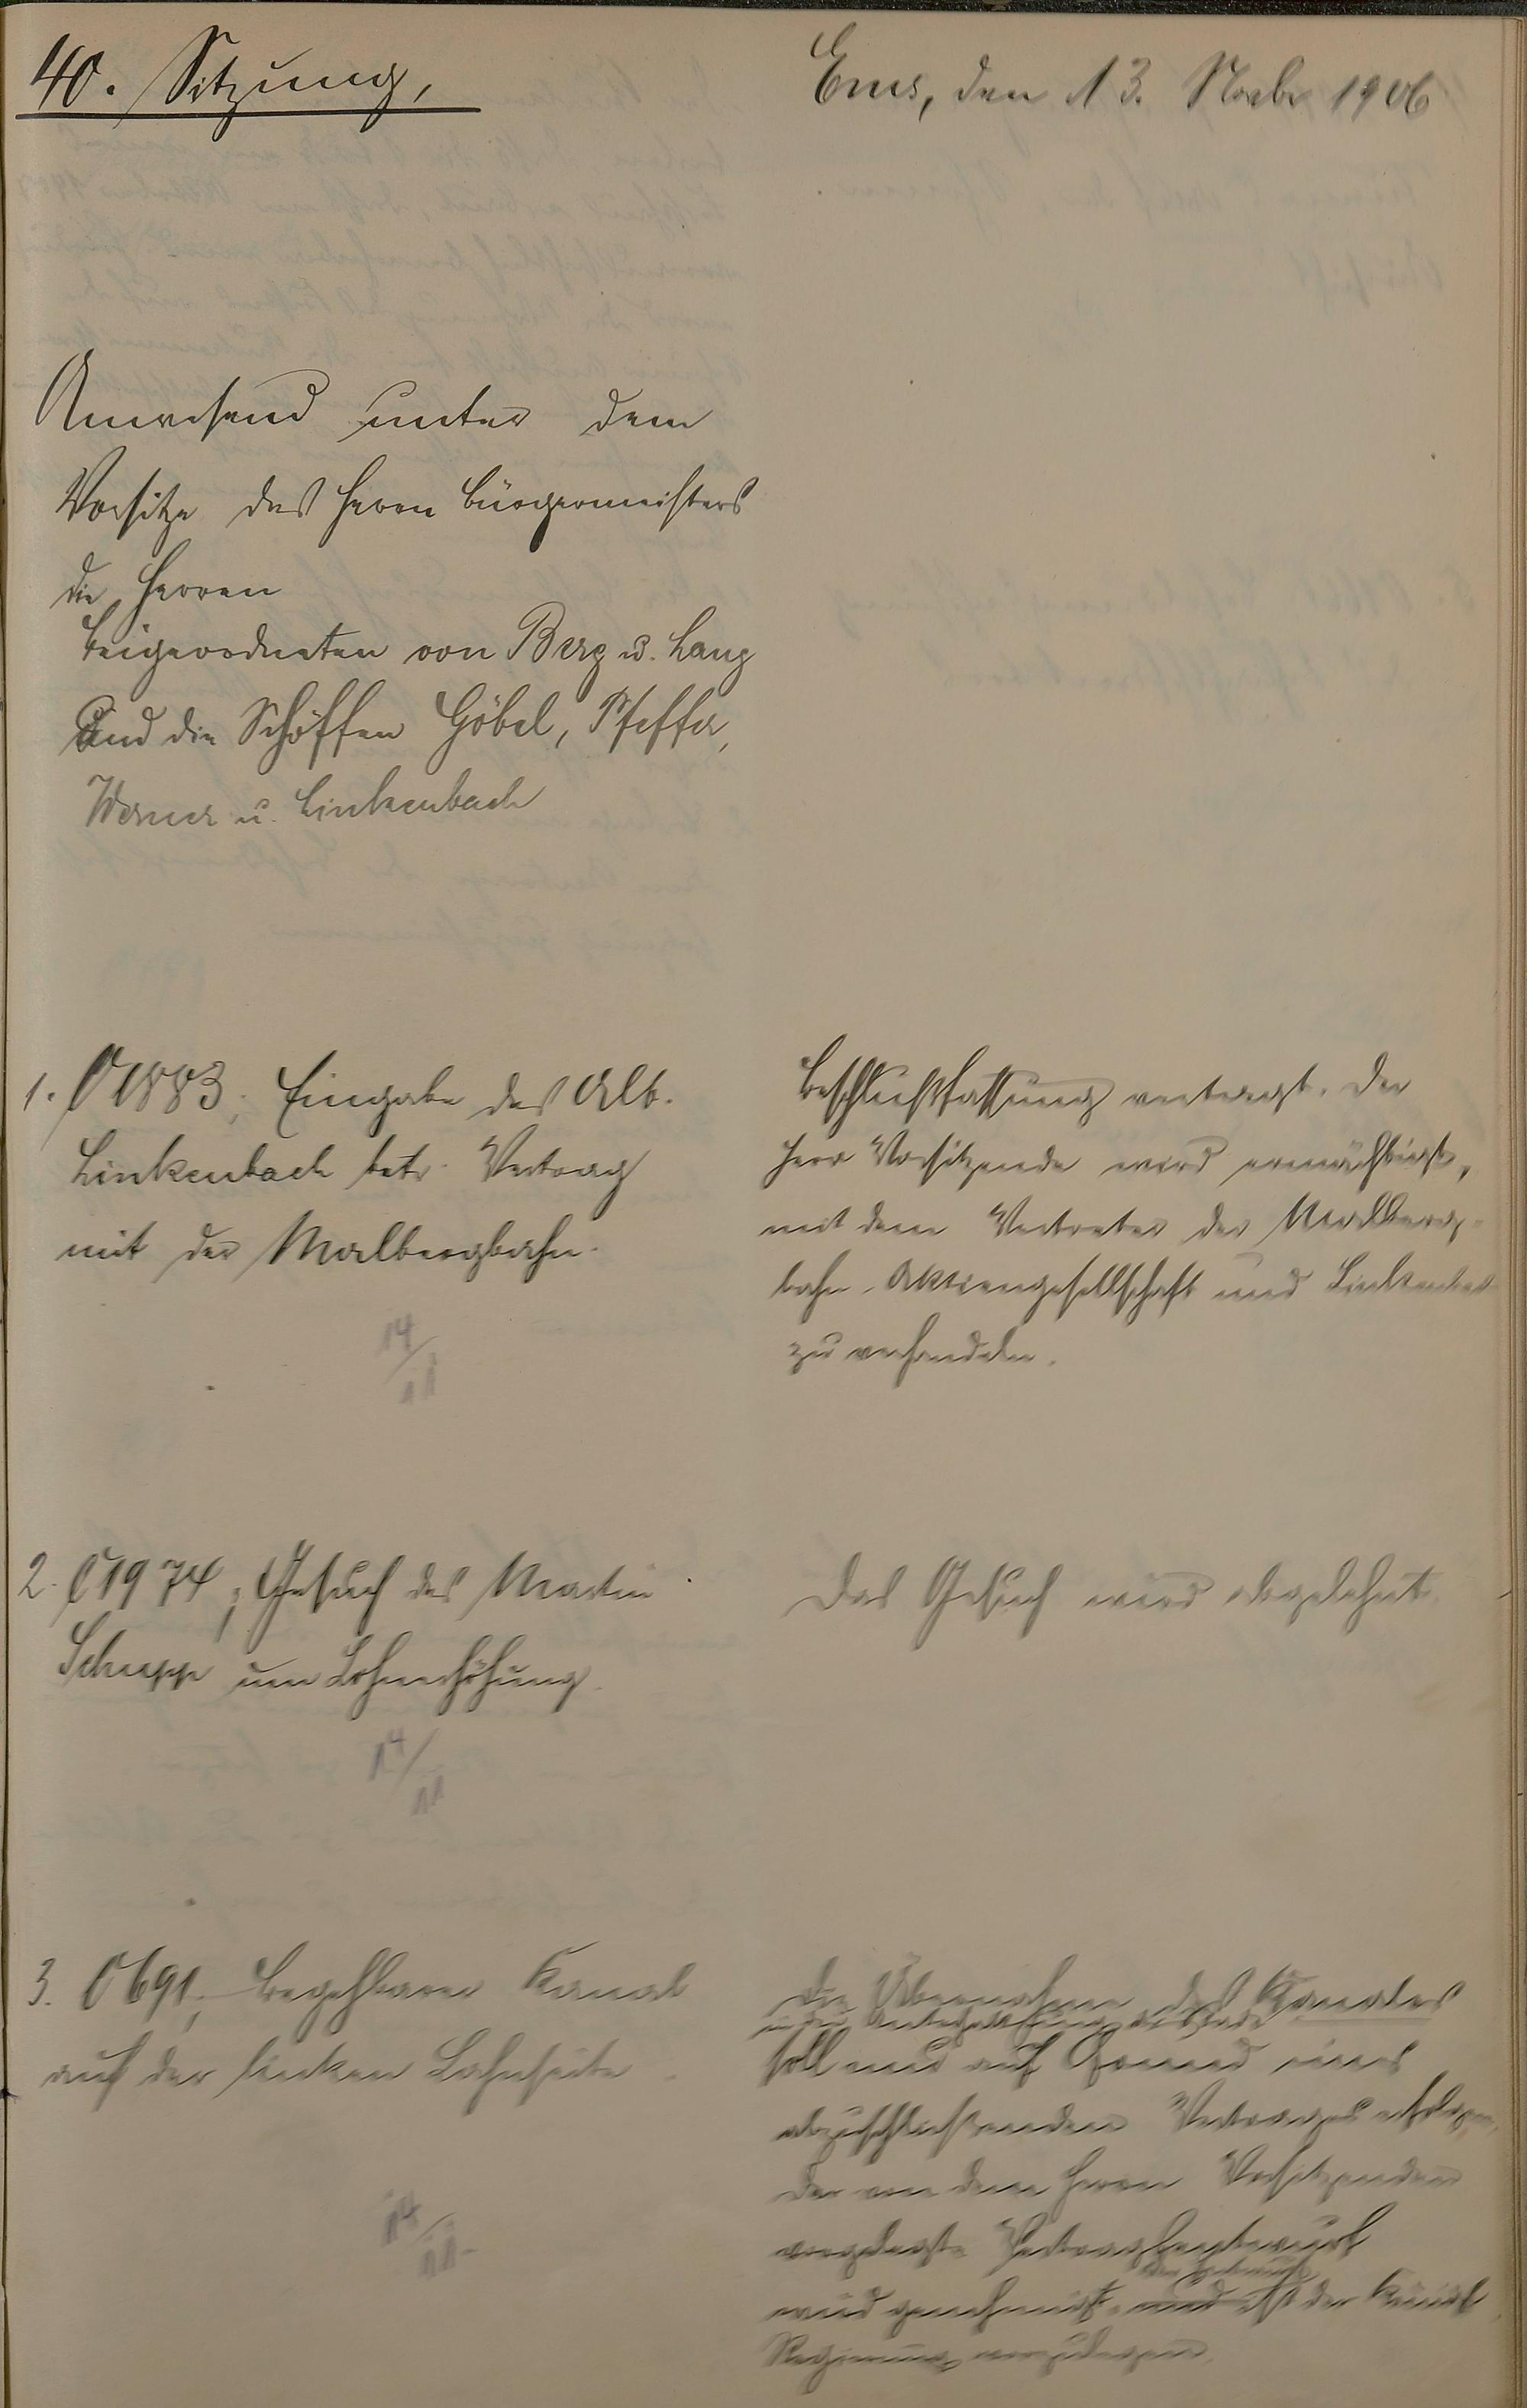 40. Sitzung,
Ems, den 13. Novbr 1906
Anwesend unter dem
Vorsitze des Herrn Bürgermeisters
die Herren
Beigeordneten von Berg u. Lang
und die Schöffen Göbel, Pfeffer,
Werner u. Linkenbach
1. C 1883; Eingabe des Alb.
Linkenbach betr. Vertrag
mit der Malbergbahn.
14/11
Beschlußfassung vertagt. Der
Herr Vorsitzende wird ermächtigt,
mit dem Vertreter der Malberg-
bahn-Aktiengesellschaft und Linkenbach
zu verhandeln.
2. C 1974; Gesuch des Martin
Schupp um Lohnerhöhung.
14/11
Das Gesuch wird abgelehnt.
3. C 691; Begehbarer Kanal
auf der linken Lahnseite.
14/11
Die Übernahme des Kanales
in die
soll nur auf Grund eines
abzuschließenden Vertrages erfolgen.
Der von dem Herrn Vorsitzenden
vorgelegte Vertragsentwurf
wird genehmigt und ist der Königl.
Regierung vorzulegen.